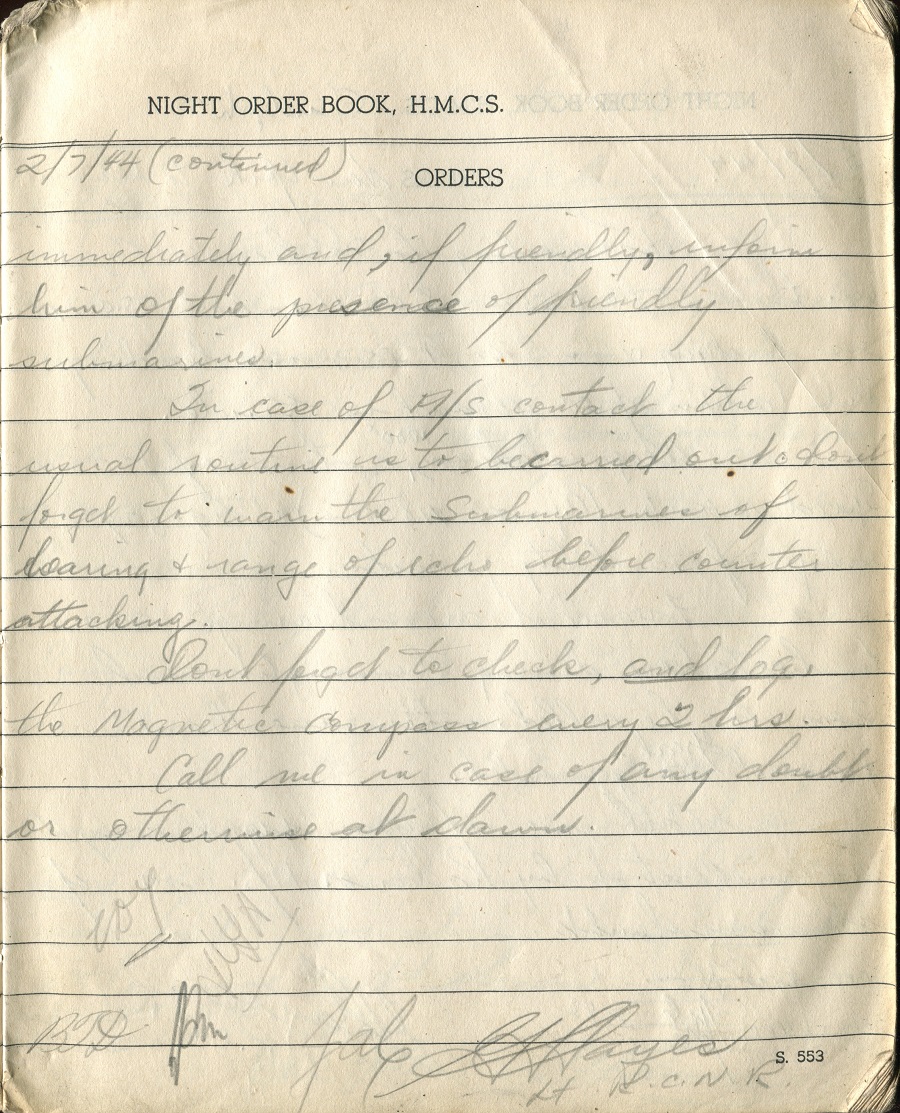 NIGHT ORDER BOOK, H.M.C.S.
2/7/44 (continued)
ORDERS
immediately and, if friendly, inform
him of the presence of friendly
submarines.
In case of A/S contact the
usual routine is to be carried out don't
forget to warn the Submarines of
bearing & range of echo before counter
attacking.
Dont forget to check, and log,
the Magnetic Compass every 2 hrs.
Call me in case of any doubt
or otherwise at dawn.
Hayes
S. 553
Lt R.C.N.R.